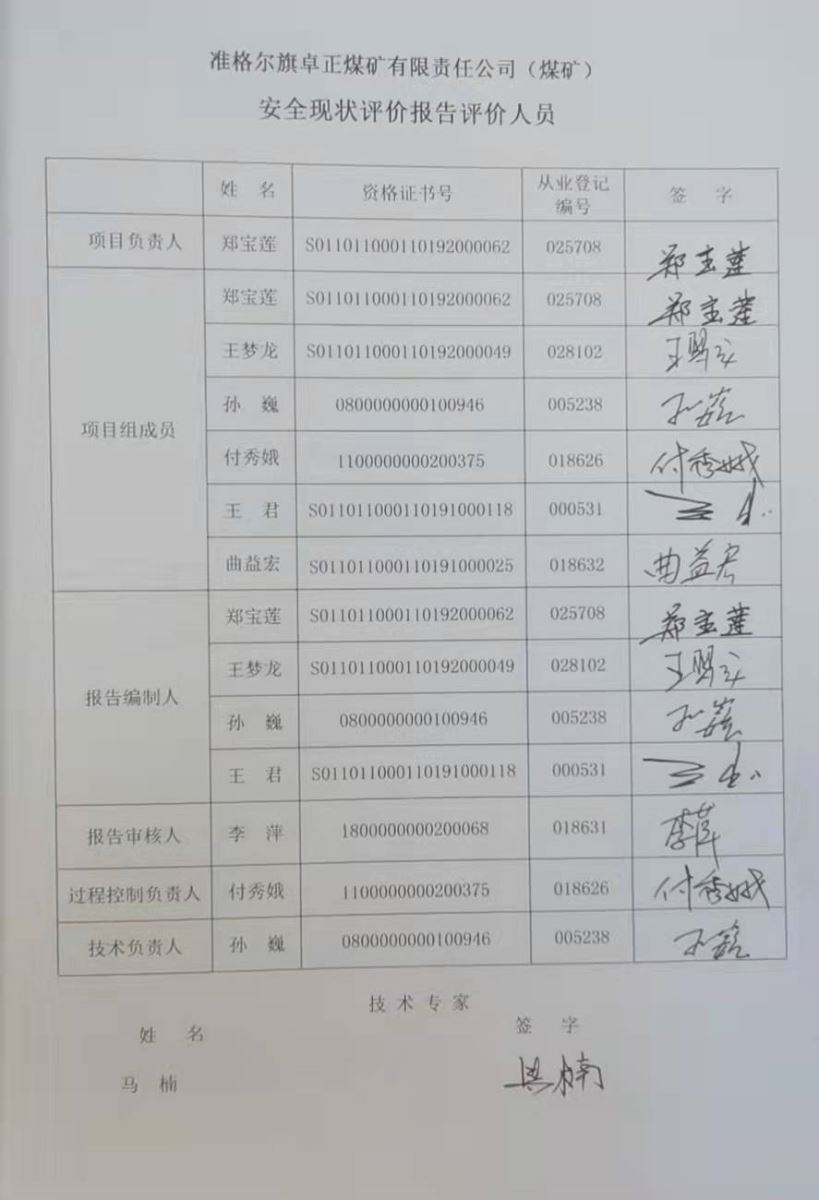 准格尔旗卓正煤矿有限责任公司（煤矿）
安全现状评价报告评价人员
姓 名 资格证书号 从业登记编号 签 字
项目负责人 郑宝莲 S011011000110192000062 025708 郑宝莲
项目组成员 郑宝莲 S011011000110192000062 025708 郑宝莲
王梦龙 S011011000110192000049 028102 王梦龙
孙 巍 0800000000100946 005238 孙巍
付秀娥 1100000000200375 018626 付秀娥
王 君 S011011000110191000118 000531 王君
曲益宏 S011011000110191000025 018632 曲益宏
报告编制人 郑宝莲 S011011000110192000062 025708 郑宝莲
王梦龙 S011011000110192000049 028102 王梦龙
孙 巍 0800000000100946 005238 孙巍
王 君 S011011000110191000118 000531 王君
报告审核人 李 萍 1800000000200068 018631 李萍
过程控制负责人 付秀娥 1100000000200375 018626 付秀娥
技术负责人 孙 巍 0800000000100946 005238 孙巍
技 术 专 家
姓 名 签 字
马 楠 马楠